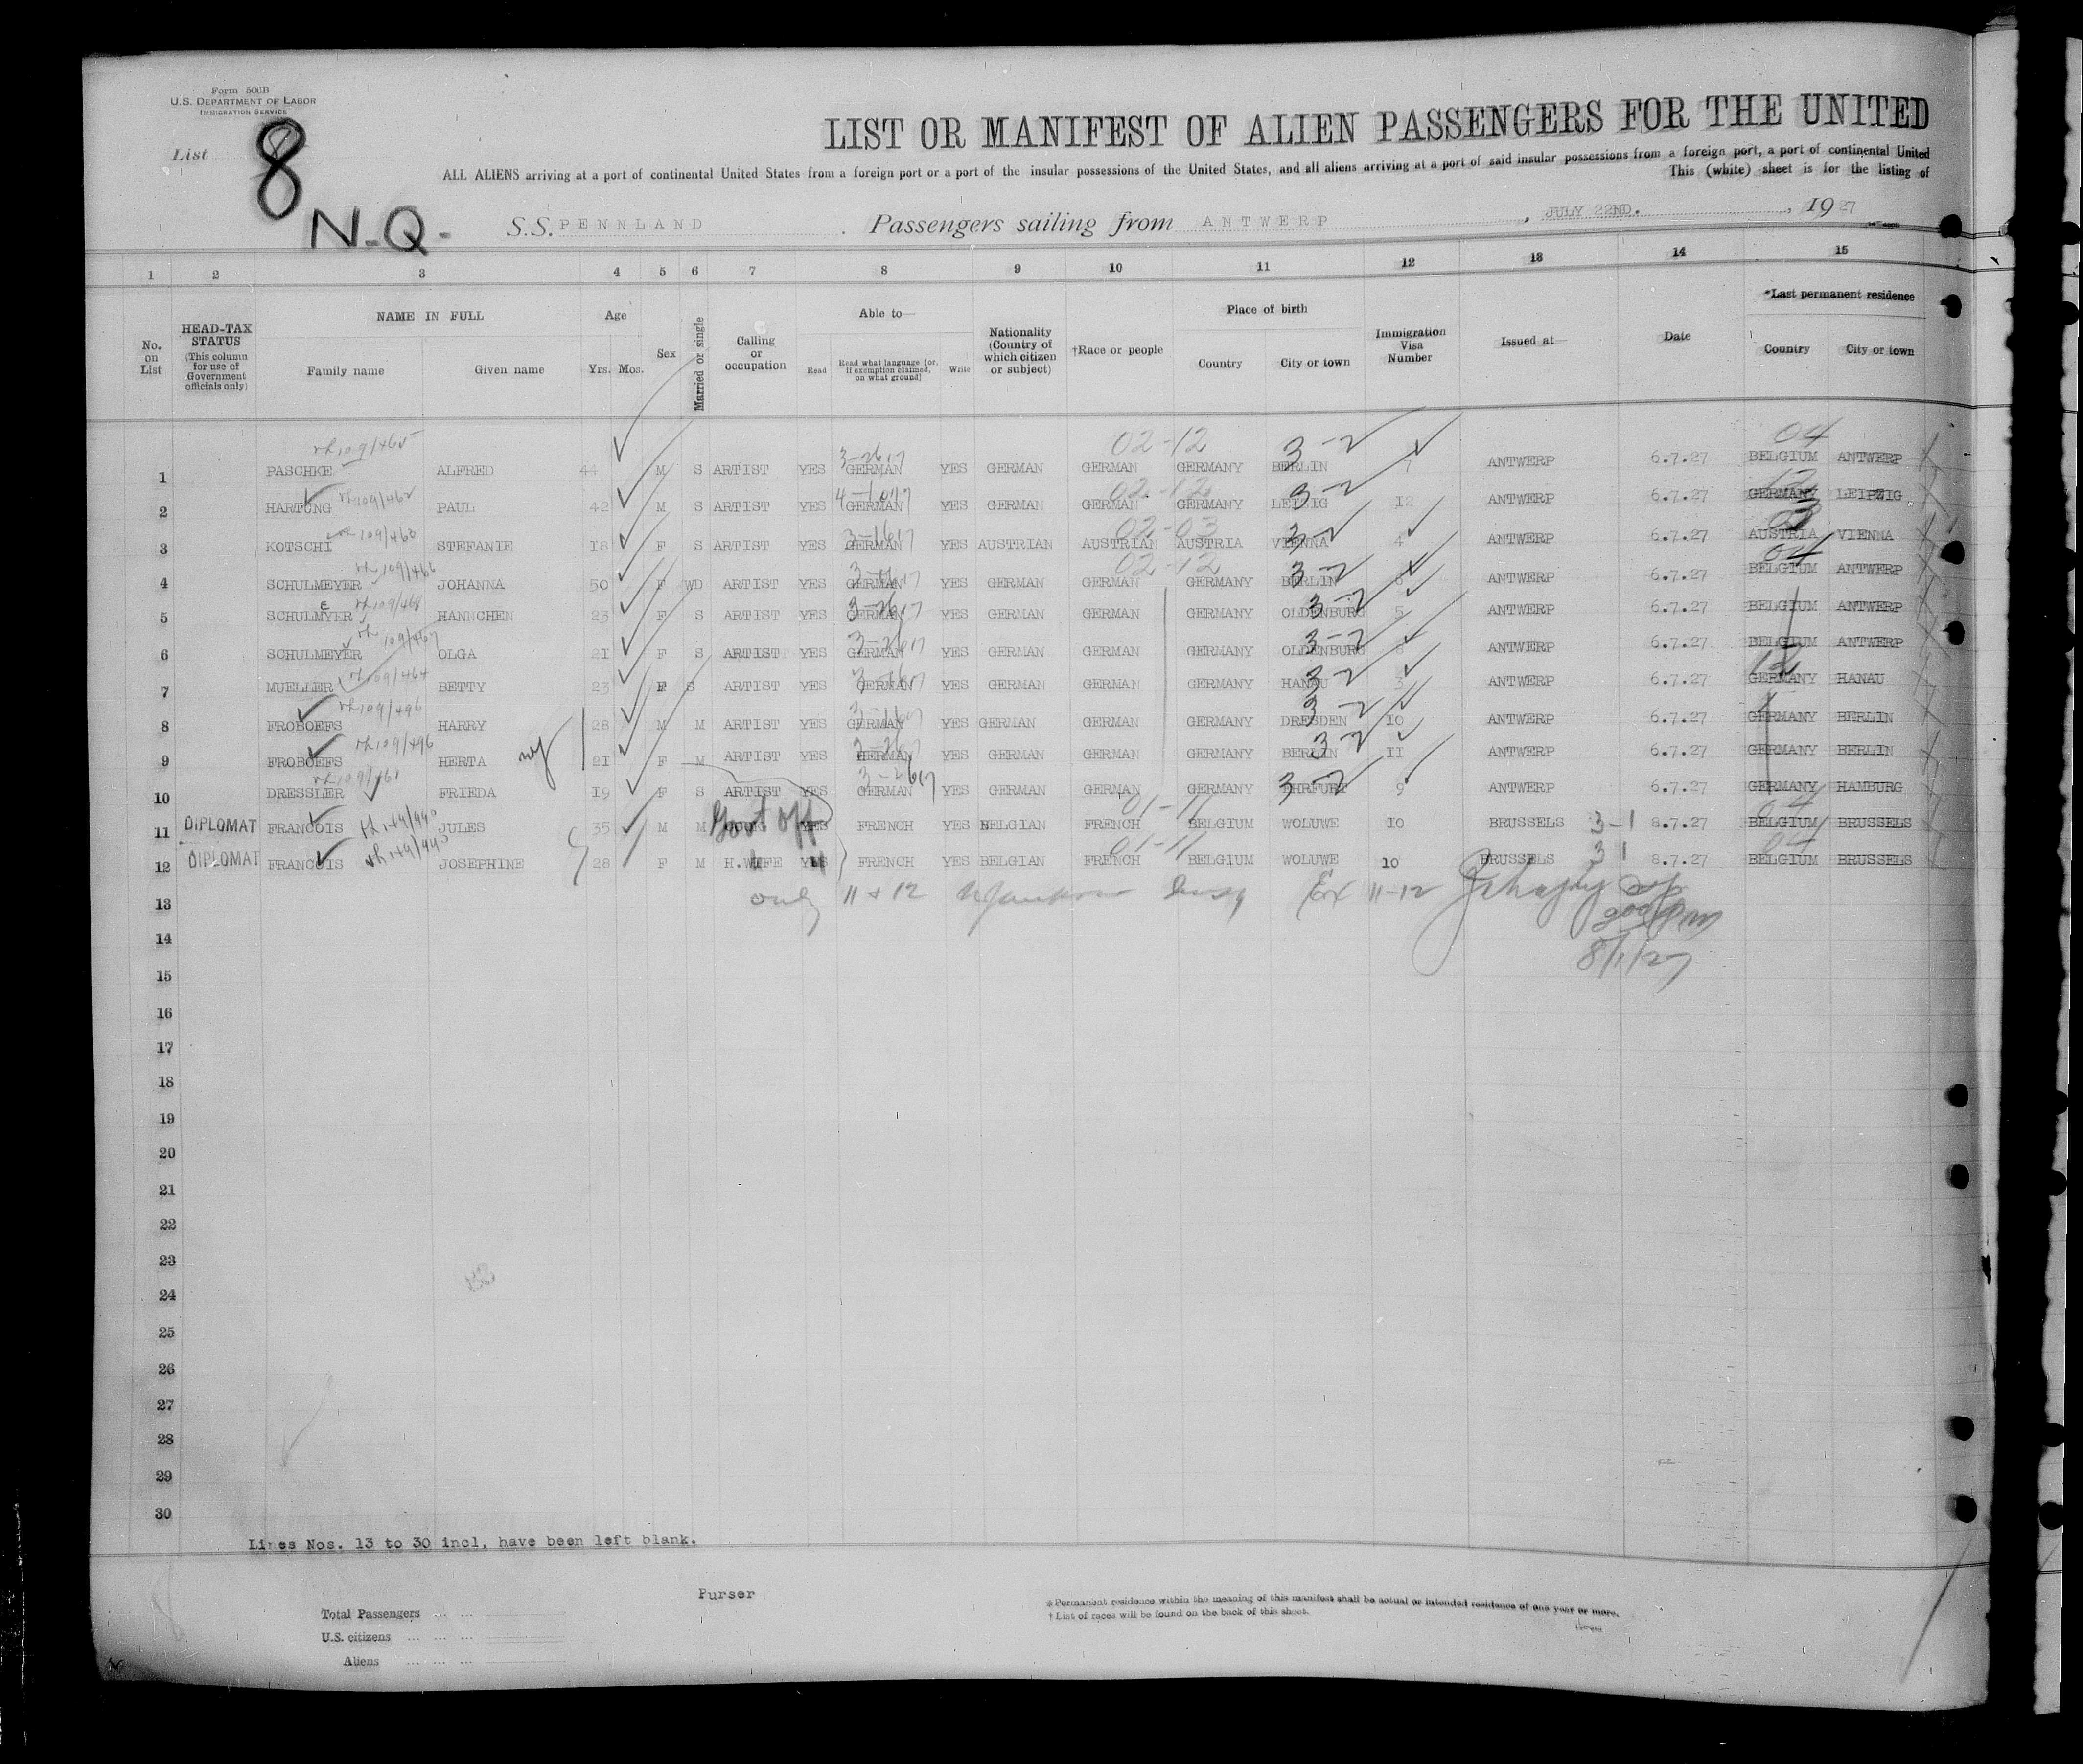 Form 500B
U.S. DEPARTMENT OF LABOR
IMMIGRATION SERVICE
List 8
N.Q.
LIST OR MANIFEST OF ALIEN PASSENGERS FOR THE UNITED
ALL ALIENS arriving at a port of continental United States from a foreign port or a port of the insular possessions of the United States, and all aliens arriving at a port of said insular possessions from a foreign port, a port of continental United
This (white) sheet is for the listing of
S.S. PENNLAND Passengers sailing from ANTWERP, JULY 22ND., 1927
1 2 3 4 5 6 7 8 9 10 11 12 13 14 15
No. on List
HEAD-TAX STATUS (This column for use of Government officials only)
NAME IN FULL
Family name Given name
Age
Yrs. Mos.
Sex
Married or single
Calling or occupation
Able to—
Read Read what language [or, if exemption claimed, on what ground] Write
Nationality (Country of which citizen or subject)
†Race or people
Place of birth
Country City or town
Immigration Visa Number
Issued at
Date
*Last permanent residence
Country City or town
02-12 3-2 04
1 PASCHKE ALFRED 44 M S ARTIST YES GERMAN YES GERMAN GERMAN GERMANY BERLIN 7 ANTWERP 6.7.27 BELGIUM ANTWERP
02-12 3-2 12
2 HARTUNG PAUL 42 M S ARTIST YES GERMAN YES GERMAN GERMAN GERMANY LEIPZIG 12 ANTWERP 6.7.27 GERMANY LEIPZIG
02-03 3-2 03
3 KOTSCHI STEFANIE 18 F S ARTIST YES GERMAN YES AUSTRIAN AUSTRIAN AUSTRIA VIENNA 4 ANTWERP 6.7.27 AUSTRIA VIENNA
02-12 3-2 04
4 SCHULMEYER JOHANNA 50 F WD ARTIST YES GERMAN YES GERMAN GERMAN GERMANY BERLIN 6 ANTWERP 6.7.27 BELGIUM ANTWERP
5 SCHULMYER HANNCHEN 23 F S ARTIST YES GERMAN YES GERMAN GERMAN GERMANY OLDENBURG 5 ANTWERP 6.7.27 BELGIUM ANTWERP
6 SCHULMEYER OLGA 21 F S ARTIST YES GERMAN YES GERMAN GERMAN GERMANY OLDENBURG ANTWERP 6.7.27 BELGIUM ANTWERP
7 MUELLER BETTY 23 F S ARTIST YES GERMAN YES GERMAN GERMAN GERMANY HANAU 3 ANTWERP 6.7.27 GERMANY HANAU
8 FROBOEFS HARRY 28 M M ARTIST YES GERMAN YES GERMAN GERMAN GERMANY DRESDEN 10 ANTWERP 6.7.27 GERMANY BERLIN
9 FROBOEFS HERTA wf 21 F M ARTIST YES GERMAN YES GERMAN GERMAN GERMANY BERLIN 11 ANTWERP 6.7.27 GERMANY BERLIN
10 DRESSLER FRIEDA 19 F S ARTIST YES GERMAN YES GERMAN GERMAN GERMANY ERFURT 9 ANTWERP 6.7.27 GERMANY HAMBURG
01-11 04
11 DIPLOMAT FRANCOIS JULES 35 M M Govt Off YES FRENCH YES BELGIAN FRENCH BELGIUM WOLUWE 10 BRUSSELS 3-1 8.7.27 BELGIUM BRUSSELS
01-11 04
12 DIPLOMAT FRANCOIS JOSEPHINE 28 F M H.WIFE YES FRENCH YES BELGIAN FRENCH BELGIUM WOLUWE 10 BRUSSELS 3 1 8.7.27 BELGIUM BRUSSELS
13 only 11 + 12 Ex 11-12
14
8/1/27
15
16
17
18
19
20
21
22
23
24
25
26
27
28
29
30
Lines Nos. 13 to 30 incl, have been left blank.
Purser
Total Passengers
U.S. citizens
Aliens
* Permanent residence within the meaning of this manifest shall be actual or intended residence of one year or more.
† List of races will be found on the back of this sheet.